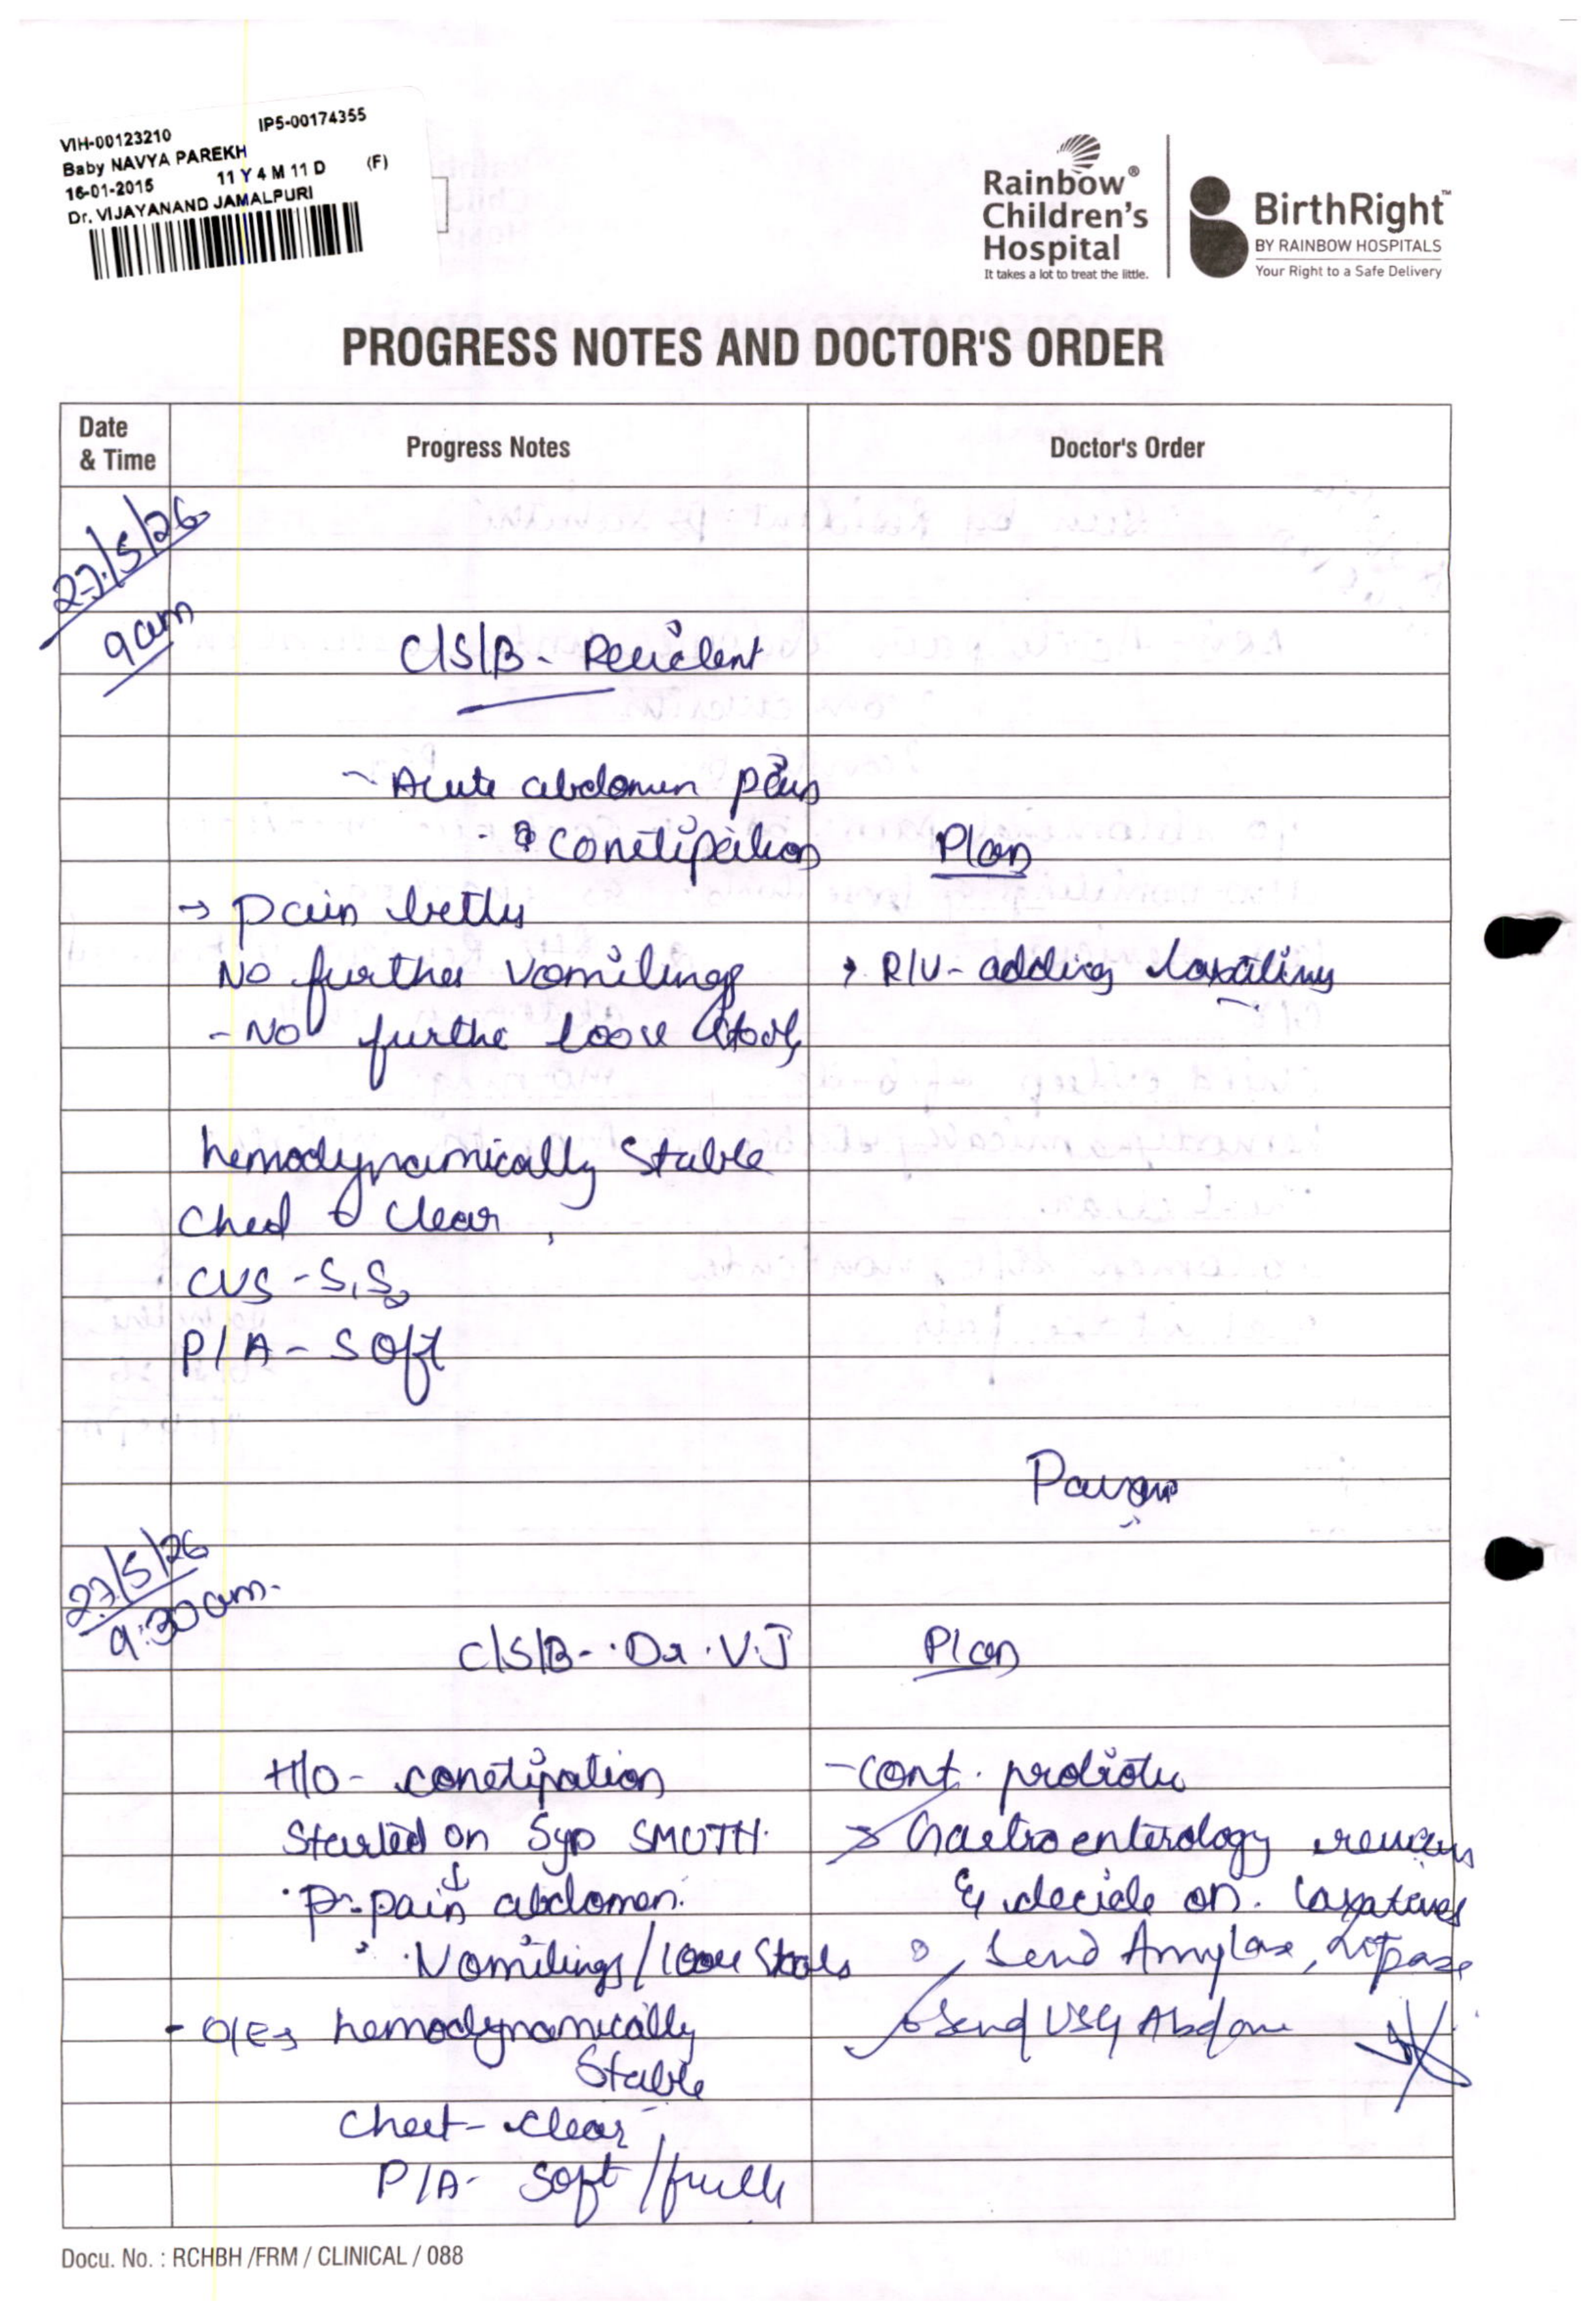 VIH-00123210 IP5-00174355
Baby NAVYA PAREKH
16-01-2015 11 Y 4 M 11 D (F)
Dr. VIJAYANAND JAMALPURI
Rainbow®
Children's
Hospital
It takes a lot to treat the little.
BirthRight™
BY RAINBOW HOSPITALS
Your Right to a Safe Delivery
PROGRESS NOTES AND DOCTOR'S ORDER
Date
& Time
Progress Notes
Doctor's Order
27/5/26
9am
C/S/B - Resident
- Acute abdomen pain
- ? Constipation
Plan
→ Pain better
No further vomitings
→ R/V - adding laxatives
- No further loose stools
hemodynamically Stable
Chest clear
CVS - S1S2
P/A - Soft
Pavan
27/5/26
9:30am.
C/S/B - Dr. V.J
Plan
H/O - constipation
- Cont. probiotic
Started on Syp SMUTH.
→ Gastroenterology review
↓
pain abdomen.
& decide on. laxatives
Vomitings / loose Stools
Send Amylase, Lipase
- O/E → hemodynamically
Send USG Abdomen
Stable
Chest - clear
P/A - Soft /
Docu. No. : RCHBH /FRM / CLINICAL / 088